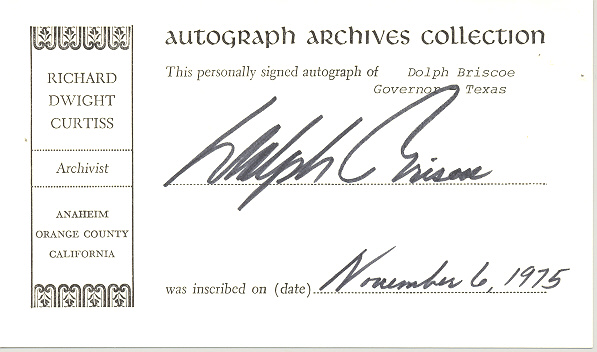 RICHARD
DWIGHT
CURTISS
Archivist
ANAHEIM
ORANGE COUNTY
CALIFORNIA
AUTOGRAPH ARCHIVES COLLECTION
This personally signed autograph of Dolph Briscoe
Governor Texas
Dolph Briscoe
was inscribed on (date) November 6, 1975